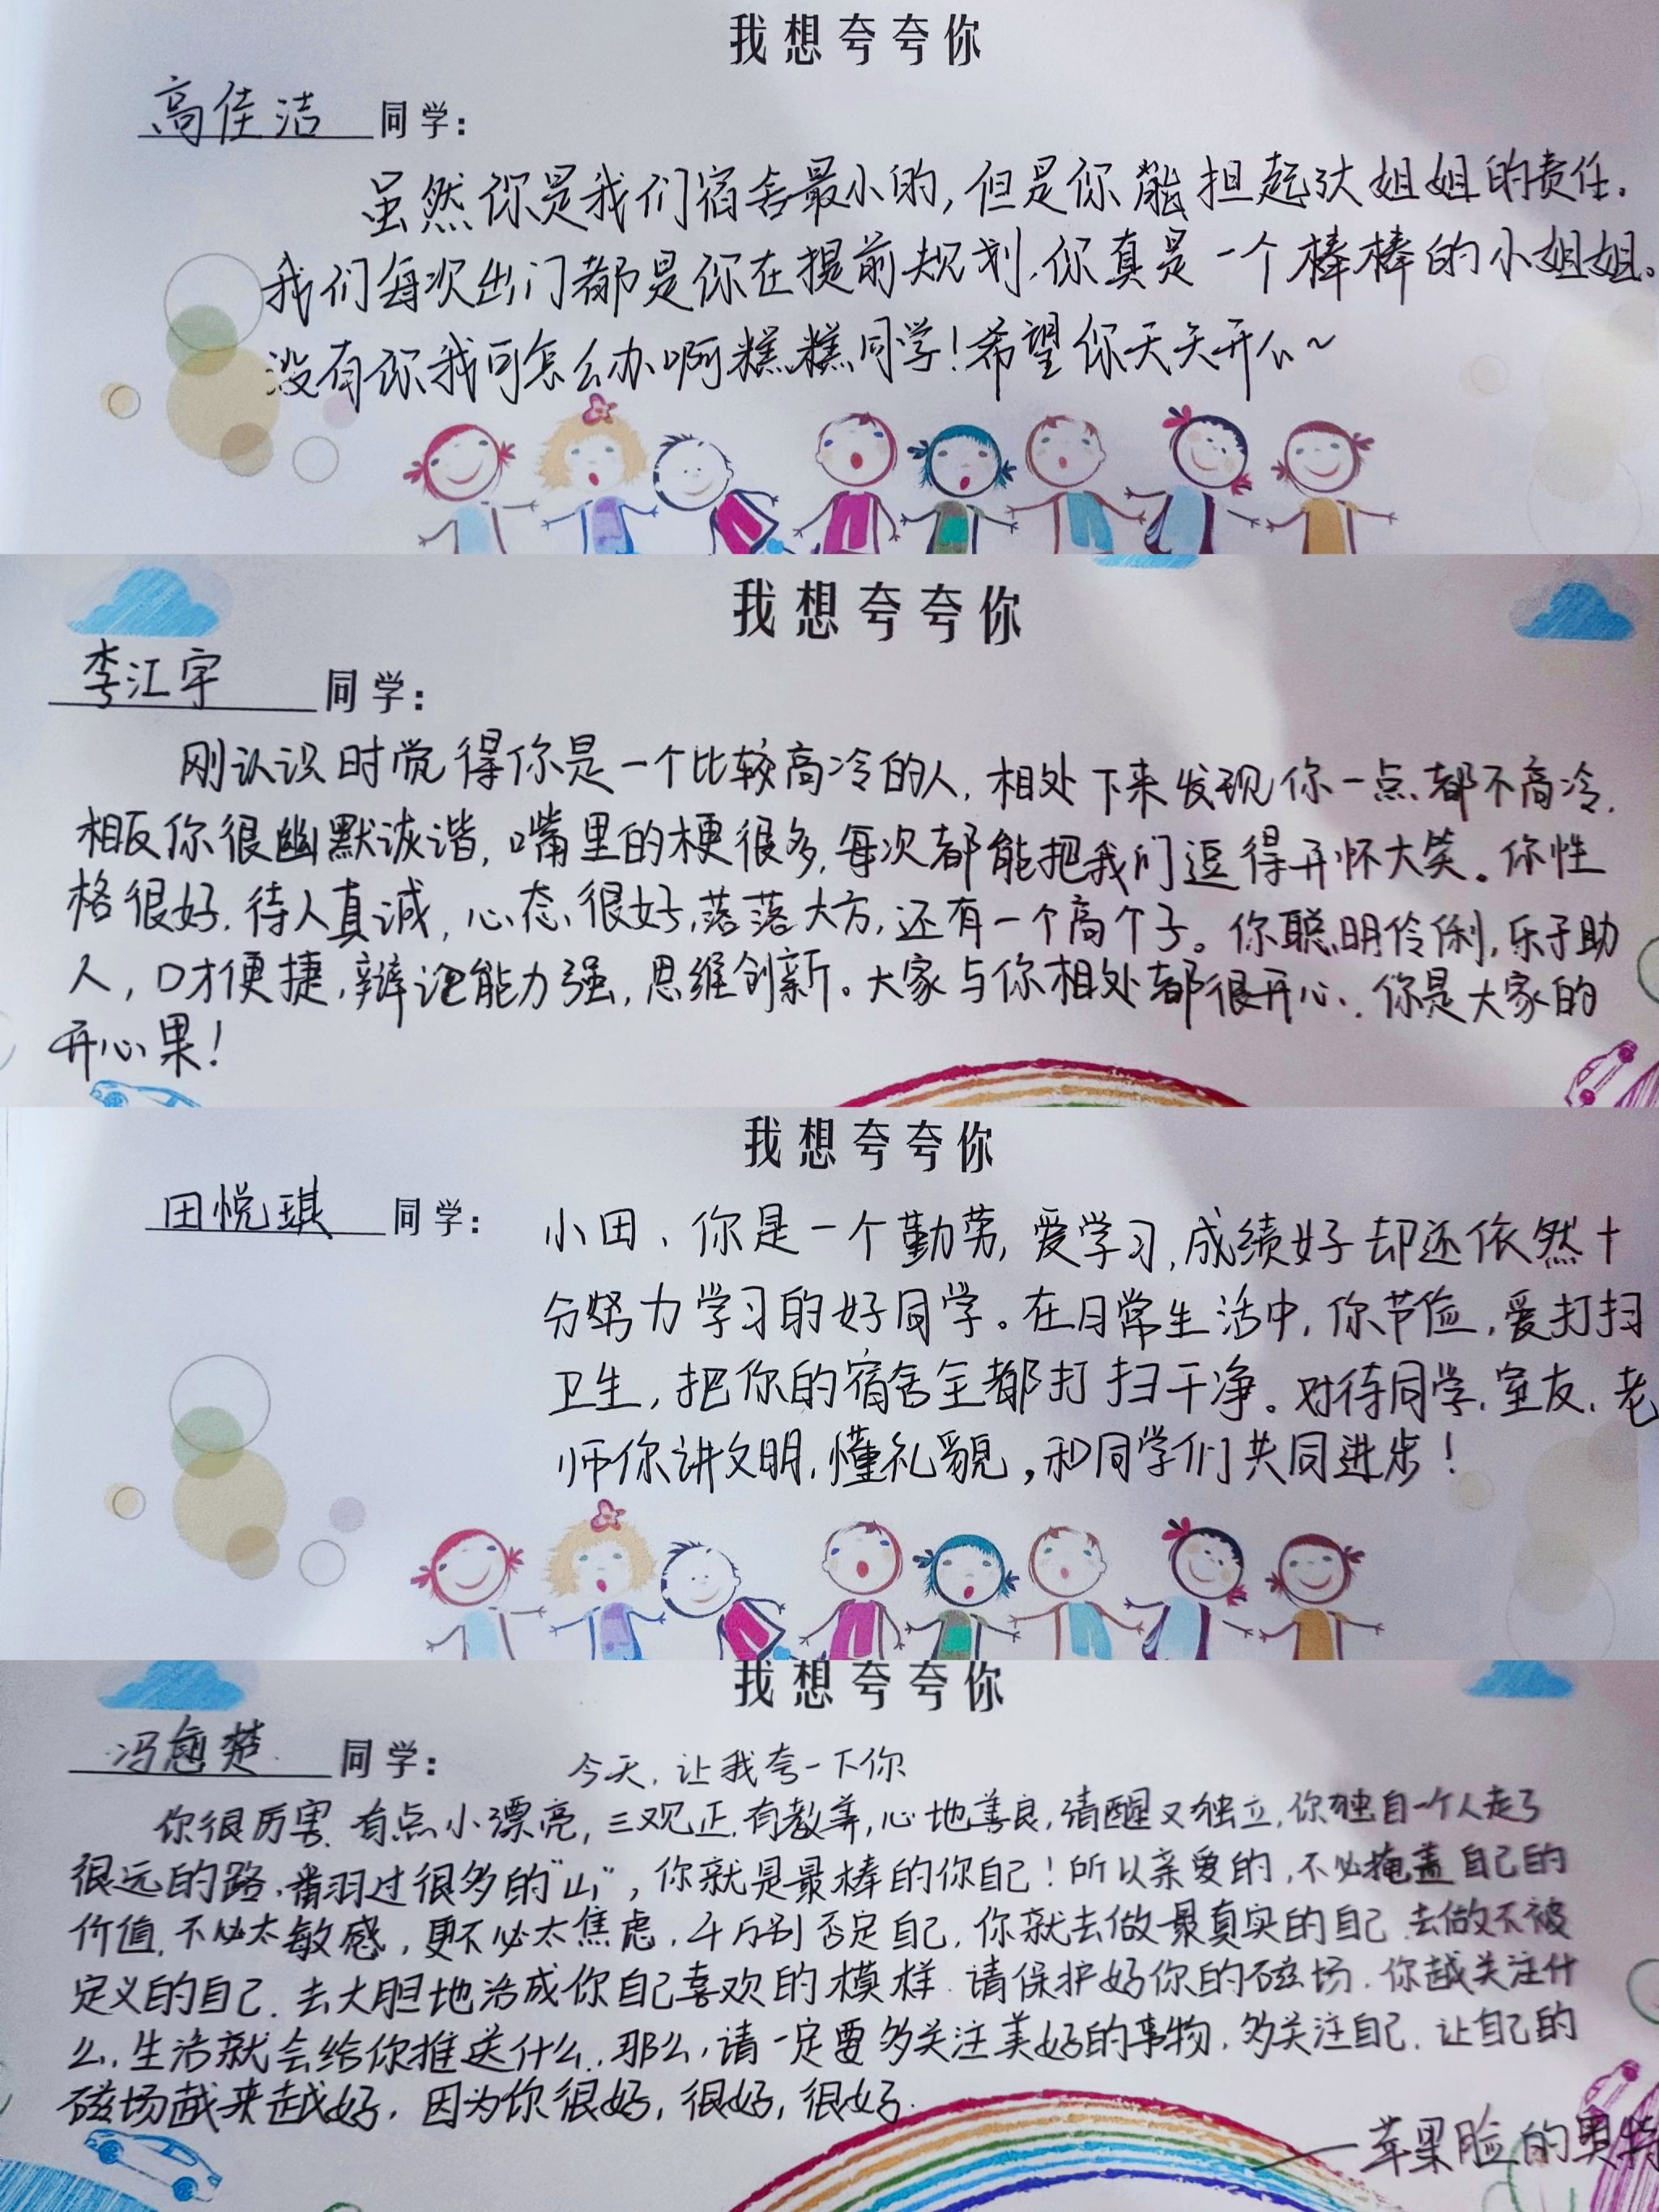 我想夸夸你
高佳洁 同学：
虽然你是我们宿舍最小的，但是你能担起大姐姐的责任。
我们每次出门都是你在提前规划，你真是一个棒棒的小姐姐。
没有你我可怎么办啊糕糕同学！希望你天天开心~
我想夸夸你
李江宇 同学：
刚认识时觉得你是一个比较高冷的人，相处下来发现你一点都不高冷，
相反你很幽默诙谐，嘴里的梗很多，每次都能把我们逗得开怀大笑。你性
格很好，待人真诚，心态很好，落落大方，还有一个高个子。你聪明伶俐，乐于助
人，口才便捷，辩论能力强，思维创新。大家与你相处都很开心，你是大家的
开心果！
我想夸夸你
田悦琪 同学：
小田，你是一个勤劳，爱学习，成绩好却还依然十
分努力学习的好同学。在日常生活中，你节俭，爱打扫
卫生，把你的宿舍全都打扫干净。对待同学，室友，老
师你讲文明，懂礼貌，和同学们共同进步！
我想夸夸你
冯愈楚 同学：
今天，让我夸一下你
你很厉害，有点小漂亮，三观正，有教养，心地善良，清醒又独立，你独自一个人走了
很远的路，翻过很多的“山”，你就是最棒的你自己！所以亲爱的，不必掩盖自己的
价值，不必太敏感，更不必太焦虑，千万别否定自己，你就去做最真实的自己，去做不被
定义的自己，去大胆地活成你自己喜欢的模样，请保护好你的磁场，你越关注什
么，生活就会给你推送什么，那么，请一定要多关注美好的事物，多关注自己，让自己的
磁场越来越好，因为你很好，很好，很好。
——苹果脸的奥特